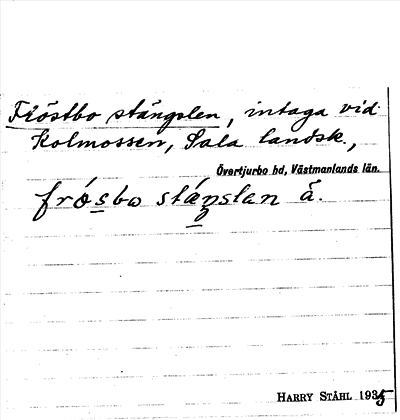 Fröstbo stängslen, intaga vid
Kolmossen, Sala landsk.,
Övertjurbo hd, Västmanlands län.
frósbo stáŋslan å.
HARRY STÅHL 1935